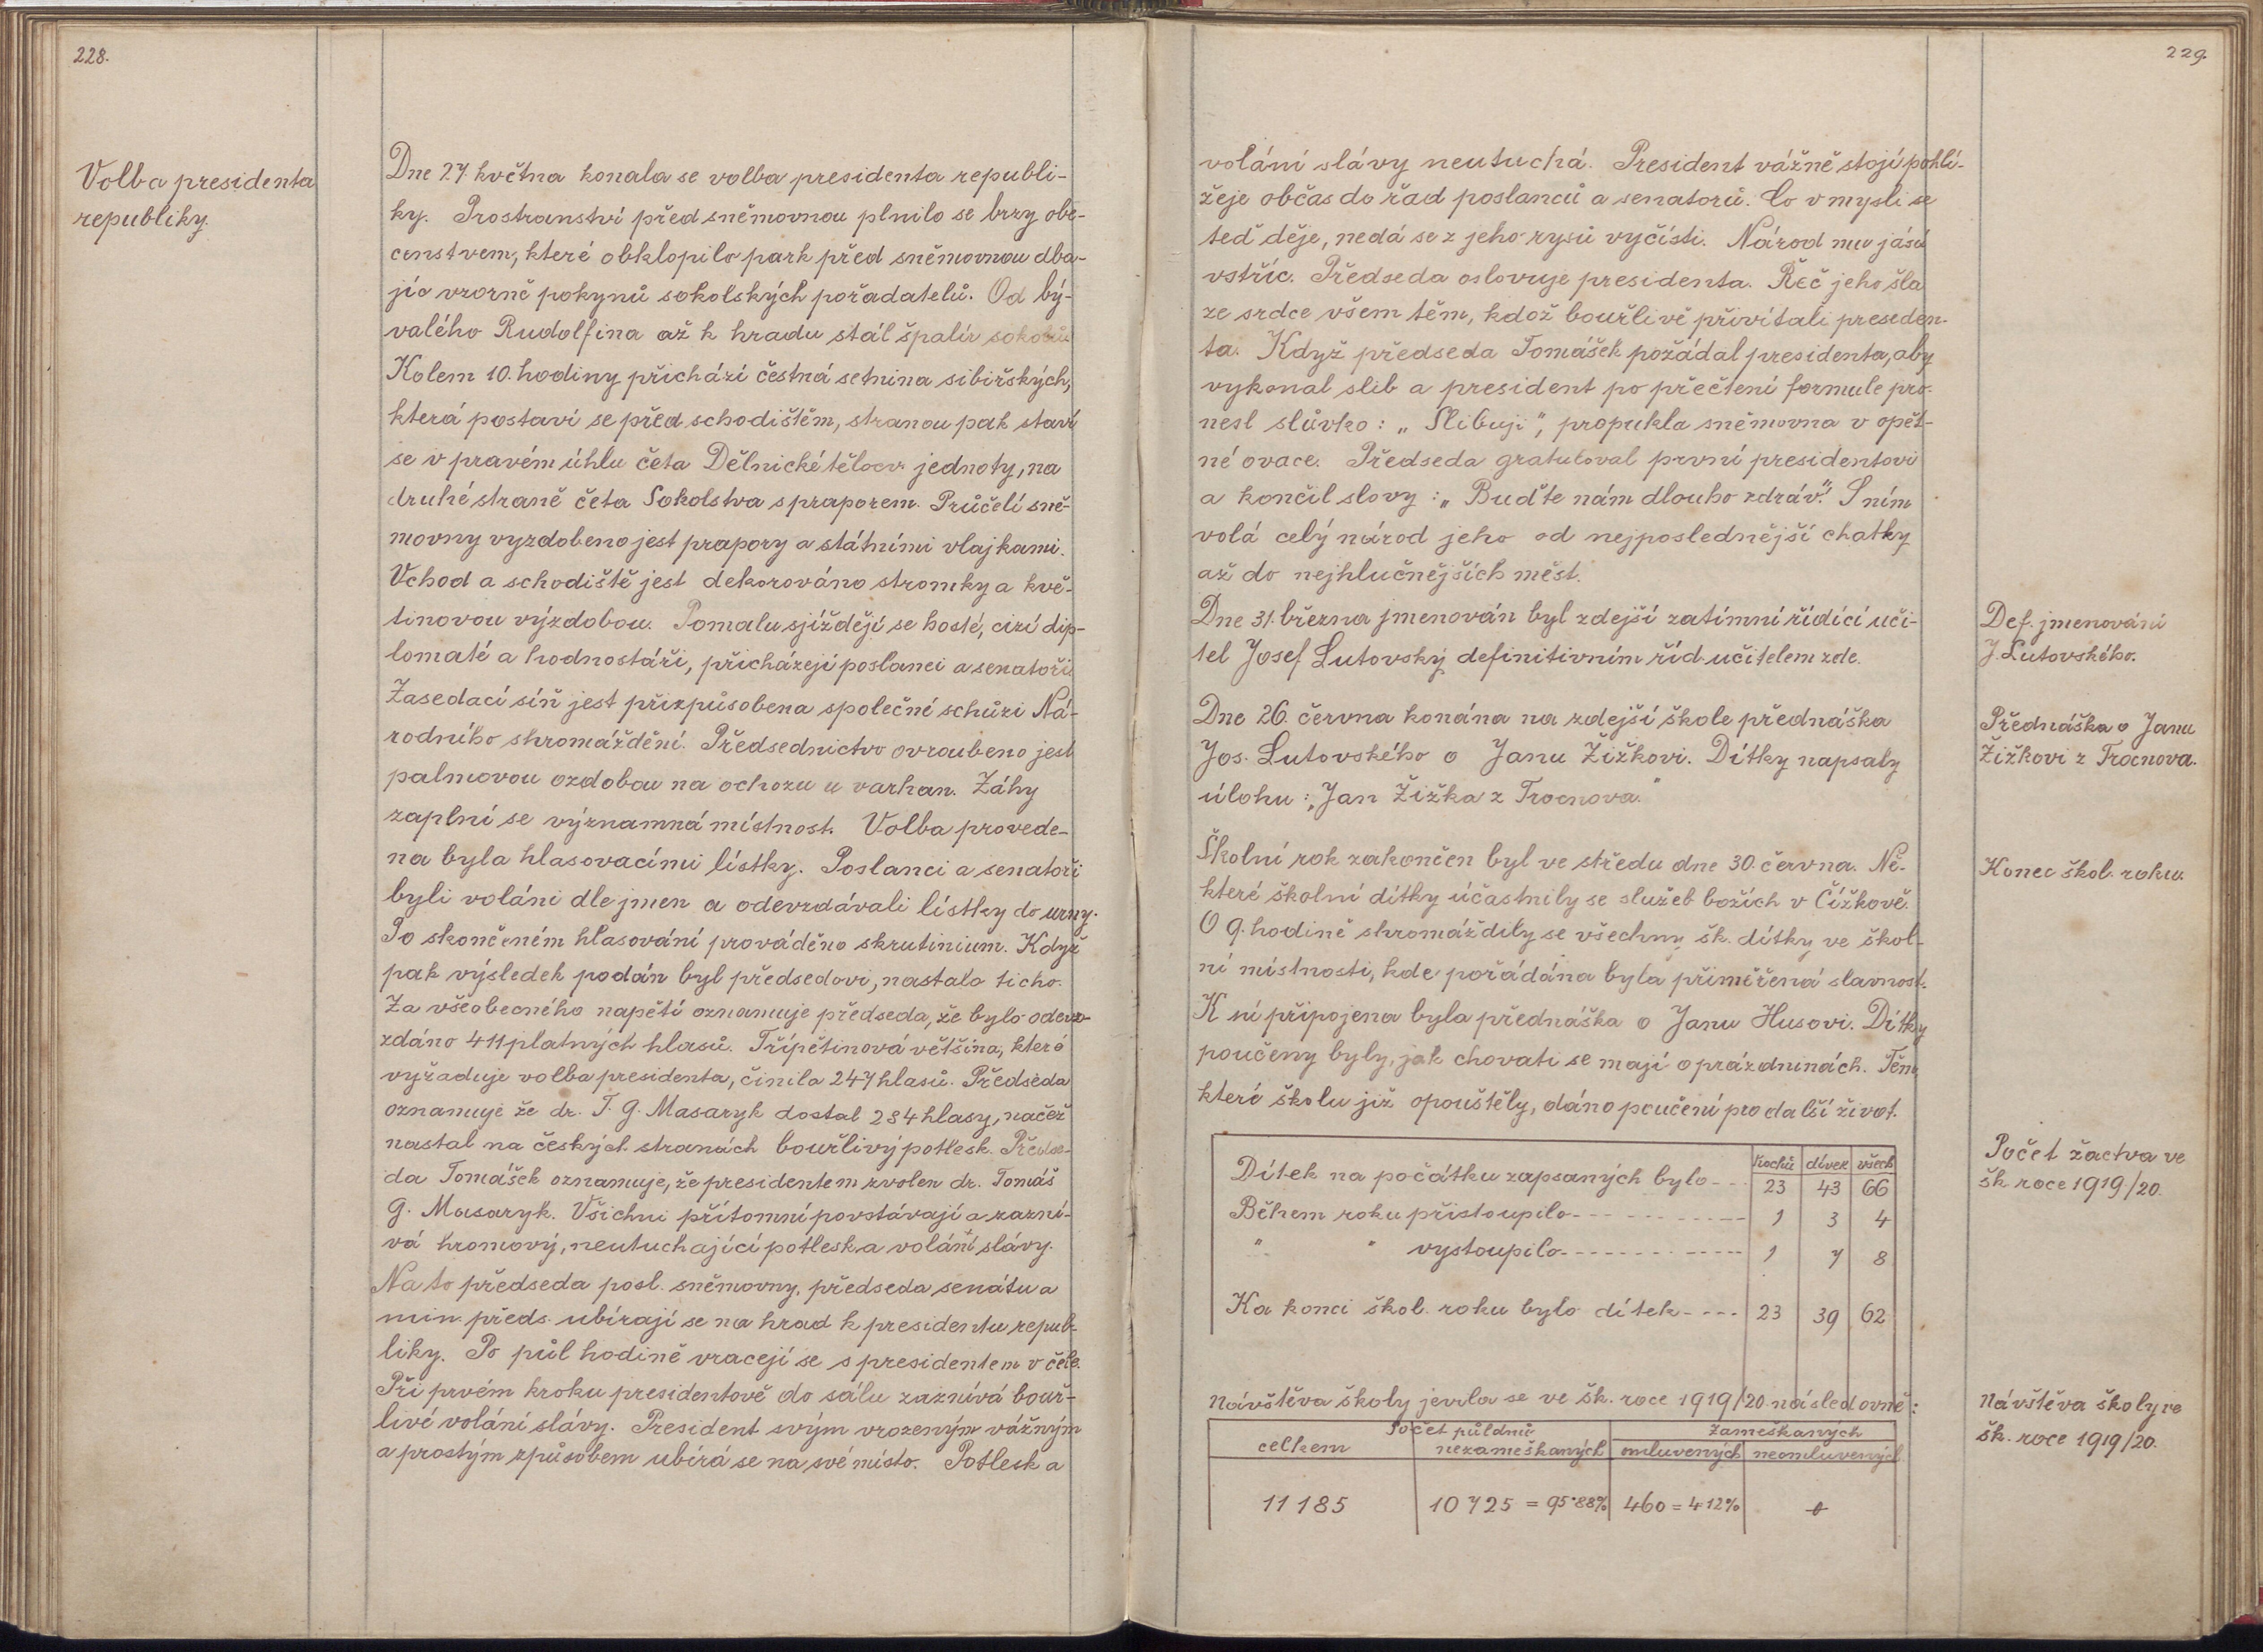 228.
Volba presidenta
republiky.
Dne 27 května konala se volba presidenta republi-
ky. Prostranství před sněmovnou plnilo se brzy obe-
censtvem, které obklopilo park před sněmovnou dba-
jíc vzorně pokynů sokolských pořadatelů. Od bý-
valého Rudolfina až k hradu stál špalír sokolů
Kolem 10. hodiny přichází čestná setnina sibiřských,
která postaví se před schodištěm, stranou pak staví
se v pravém úhlu četa Dělnické tělocv. jednoty, na
druhé straně četa Sokolstva s praporem. Průčelí sně-
movny vyzdobeno jest prapory a státními vlajkami.
Vchod a schodiště jest dekorováno stromky a kvě-
tinovou výzdobou. Pomalu sjíždějí se hosté, cizí dip-
lomaté a hodnostáři, přicházejí poslanci a senatoři.
Zasedací síň jest přizpůsobena společné schůzi Ná-
rodního shromáždění. Předsednictvo ovroubeno jest
palmovou ozdobou na ochozu u varhan. Záhy
zaplní se významná místnost. Volba provede-
na byla hlasovacími lístky. Poslanci a senatoři
byli voláni dle jmen a odevzdávali lístky do urny.
Po skončeném hlasování prováděno skrutinium. Když
pak výsledek podán byl předsedovi, nastalo ticho.
Za všeobecného napětí oznamuje předseda, že bylo odevz-
zdáno 411 platných hlasů. Třípětinová většina, které
vyžaduje volba presidenta, činila 247 hlasů. Předseda
oznamuje že dr. T. G. Masaryk dostal 284 hlasy, načež
nastal na českých stranách bouřlivý potlesk. Předse-
da Tomášek oznamuje, že presidentem zvolen dr. Tomáš
G. Masaryk. Všichni přítomní povstávají a zazní-
vá hromový, neutuchající potlesk a volání slávy.
Na to předseda posl. sněmovny, předseda senátu a
min. předs. ubírají se na hrad k presidentu repub-
liky. Po půl hodině vracejí se s presidentem v čele.
Při prvém kroku presidentově do sálu zaznívá bouř-
livé volání slávy. President svým vrozeným vážným
a prostým způsobem ubírá se na své místo. Potlesk a
229.
volání slávy neutuchá. President vážně stojí pohlí-
žeje občas do řad poslanců a senatorů. Co v mysli se
teď děje, nedá se z jeho rysů vyčísti. Národ mu jásá
vstříc. Předseda oslovuje presidenta. Řeč jeho šla
ze srdce všem těm, kdož bouřlivě přivítali preseden-
ta. Když předseda Tomášek požádal presidenta, aby
vykonal slib a president po přečtení formule pro-
nesl slůvko: „Slibuji", propukla sněmovna v opět-
né ovace. Předseda gratuloval první presidentovi
a končil slovy: „Buďte nám dlouho zdráv." S ním
volá celý národ jeho od nejposlednější chatky
až do nejhlučnějších měst.
Dne 31. března jmenován byl zdejší zatímní řídící uči-
tel Josef Lutovský definitivním říd. učitelem zde.
Def. jmenování
J. Lutovského.
Dne 26. června konána na zdejší škole přednáška
Jos. Lutovského o Janu Žižkovi. Dítky napsaly
úlohu: „Jan Žižka z Trocnova."
Přednáška o Janu
Žižkovi z Trocnova.
Školní rok zakončen byl ve středu dne 30. června. Ně-
které školní dítky účastnily se služeb božích v Čížkově.
O 9. hodině shromáždily se všechny šk. dítky ve škol-
ní místnosti, kde pořádána byla přiměřená slavnost.
K ní připojena byla přednáška o Janu Husovi. Dítky
poučeny byly, jak chovati se mají o prázdninách. Těm
které školu již opouštěly, dáno poučení pro další život.
Konec škol. roku.
hochů dívek všech
Dítek na počátku zapsaných bylo --- 23 43 66
Během roku přistoupilo --- 1 3 4
" " vystoupilo --- 1 7 8
Ka konci škol. roku bylo dítek ---- 23 39 62
Počet žactva ve
šk roce 1919/20.
Návštěva školy jevila se ve šk. roce 1919/20 následovně:
Počet půldnů zameškaných
celkem nezameškaných omluvených neomluvených
11185 10725 = 95·88% 460 = 4·12% 0
Návštěva školy ve
šk. roce 1919/20.